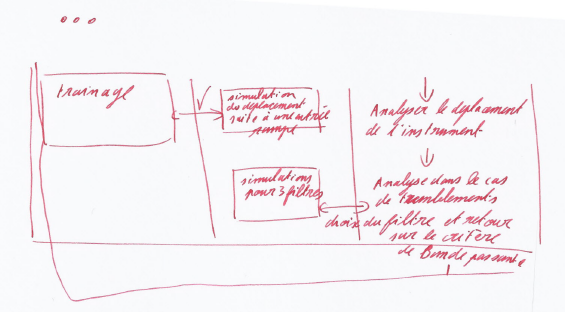 trainage
simulation
des deplacement
suite à une entrée
rampe
simulations
pour 3 filtres
Analyser le deplacement
de l'instrument
Analyse dans le cas
de tremblements
choix du filtre et retour
sur le critère
de Bande passante